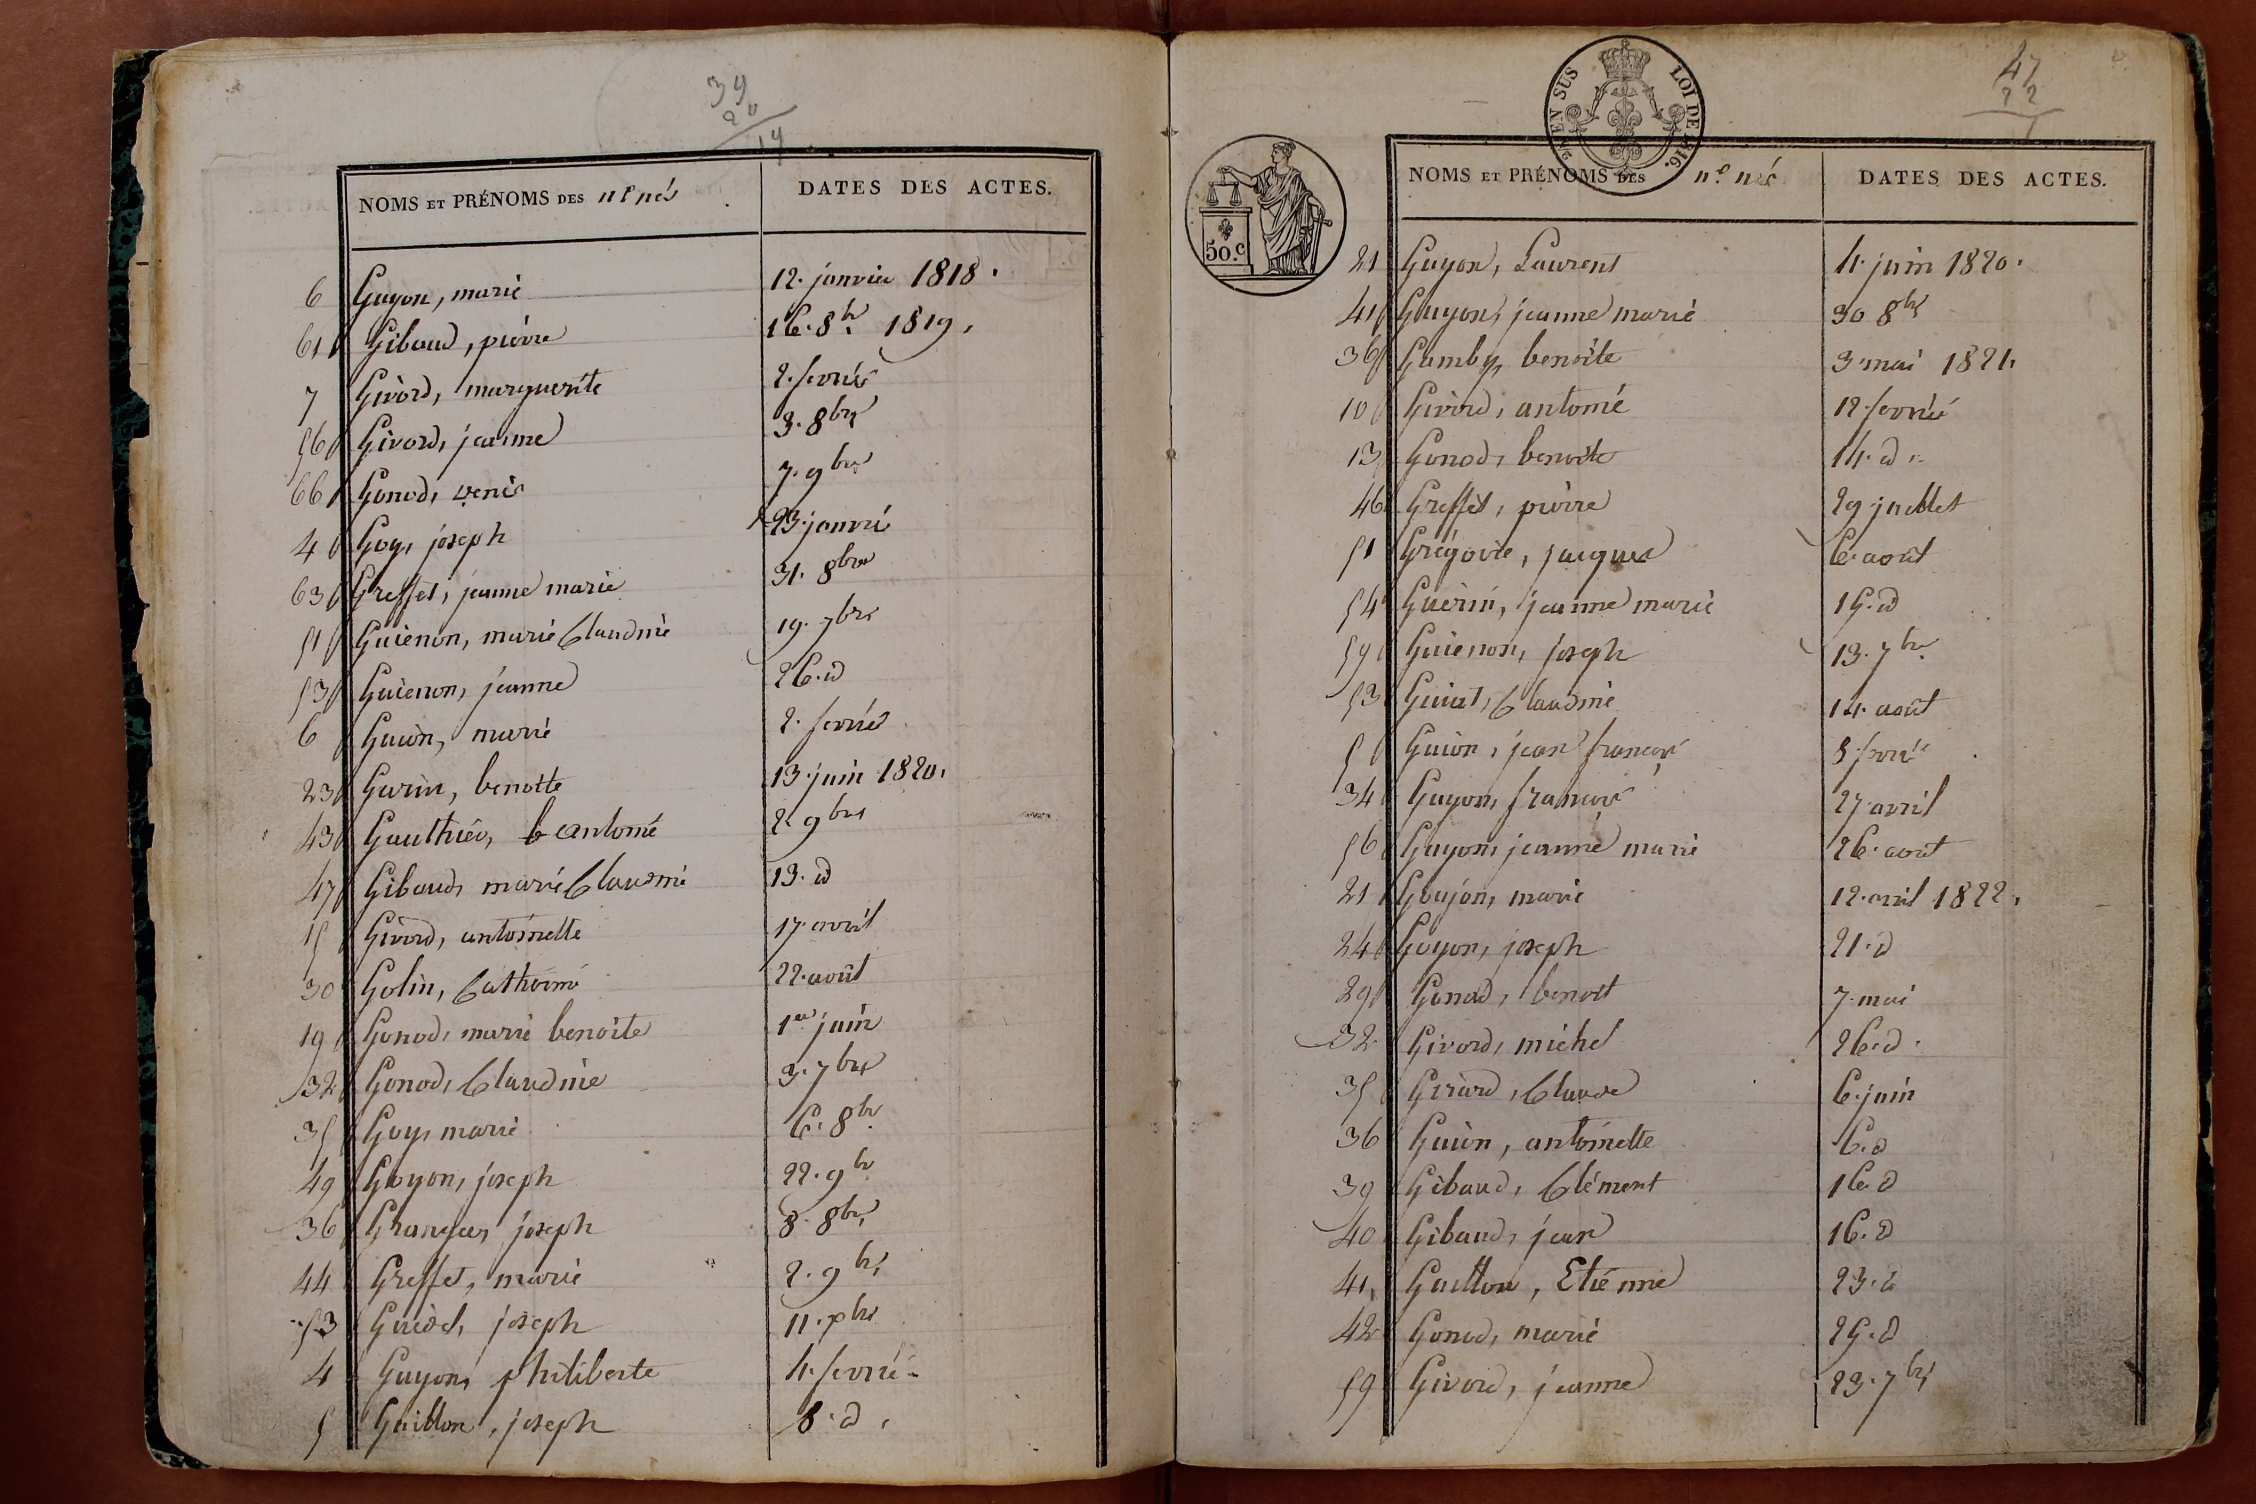 39
20
19
NOMS ET PRÉNOMS DES nés
DATES DES ACTES.
6 Guyon, marie 12. janvier 1818.
61 Gibaud, pierre 16. 8br. 1819,
7 Givord, marguerite 2. fevrier
56 Givord, jeanne 3. 8bre
66 Gonod, denis 7. 9bre
4 Goy, joseph 23. janvié
63 Greffet, jeanne marie 31. 8bre
51 Guienon, marie Claudine 19. 7bre
53 Guienon, jeanne 26. d
6 Guion, marie 2. fevrier
23 Gurin, benoitte 13. juin 1820,
43 Gauthier, antoine 2. 9bre
47 Gibaud, marie Claudine 13. d
15 Givord, antoinette 17. avril
30 Golin, Catherine 22. août
19 Gonod, marie benoite 1er juin
32 Gonod, Claudine 3. 7bre
35 Goy, marie 6. 8br.
49 Goyon, joseph 22. 9br
36 joseph 8. 8bre
44 Greffet, marie 2. 9bre
53 joseph 11. xbre
4 Guyon, philiberte 4. fevrié
5 Guillon, joseph 8. d,
EN SUS LOI DE 1816.
50.c
47
22
NOMS ET PRÉNOMS DES n.é nés
DATES DES ACTES.
21 Guyon, Laurent 4. juin 1820.
41 Guyon, jeanne marie 30 8bre
36 Gamby, benoite 3 mai 1821,
10 Givord, antoine 12. fevrié
13 Gonod, benoite 14. d
46 Greffet, pierre 29 juillet
51 Grégoire, jacques 6. août
54 Guerin, jeanne marie 15. d
59 Guienon, joseph 13. 7bre
53 Claudine 14. août
5 Guion, jean françois 8 fevrié
34 Guyon, françois 27 avril
56 Guyon, jeanne marie 26. août
21 Goujon, marie 12. avril 1822,
24 Goyon, joseph 21. d
29 Gonod, benoit 7. mai
32 Givord, michel 26. d.
35 Girard, Claude 6. juin
36 Guion, antoinette 6. d
39 Gibaud, Clément 16. d
40 Gibaud, jean 16. d
41, Guillon, Etiénne 23. d
42 Gonod, marie 25. d
59 Givord, jeanne 23. 7bre